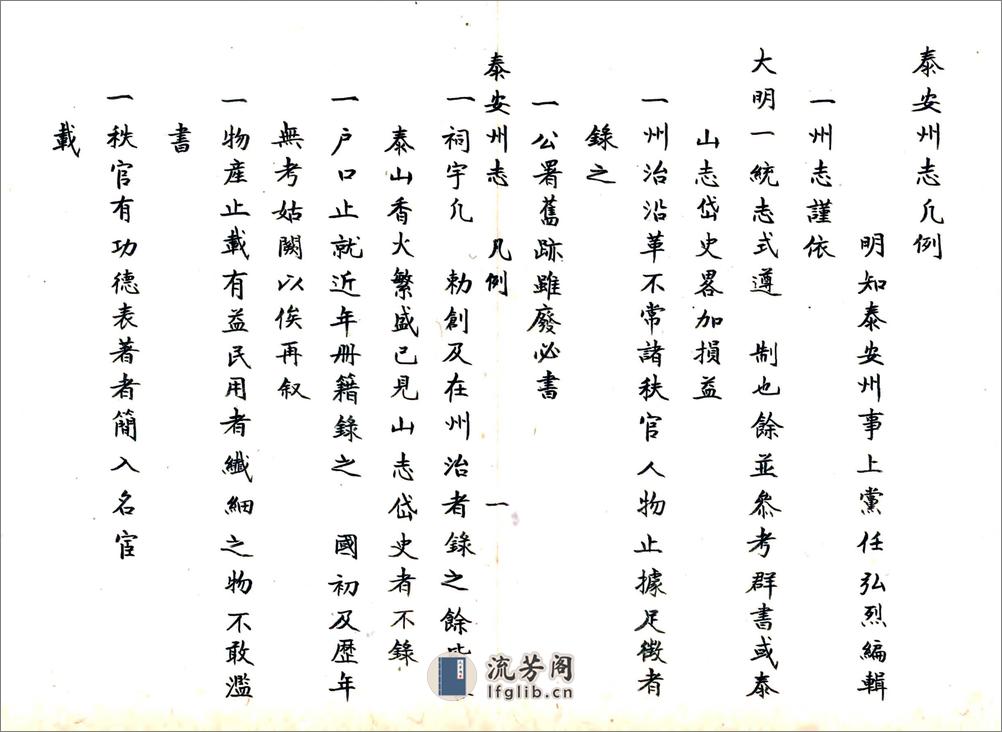 泰安州志凡例
明知泰安州事上黨任弘烈編輯
一州志謹依
大明一統志式遵 制也餘並參考群書或泰
山志岱史畧加損益
一州治沿革不常諸秩官人物止據足徴者
錄之
一公署舊跡雖廢必書
泰安州志 凡例 一
一祠宇凡 勅創及在州治者錄之餘
泰山香火繁盛已見山志岱史者不錄
一户口止就近年册籍錄之 國初及歷年
無考姑闕以俟再叙
一物産止載有益民用者纎細之物不敢濫
書
一秩官有功德表著者簡入名宦
載
流芳阁
lfglib.cn